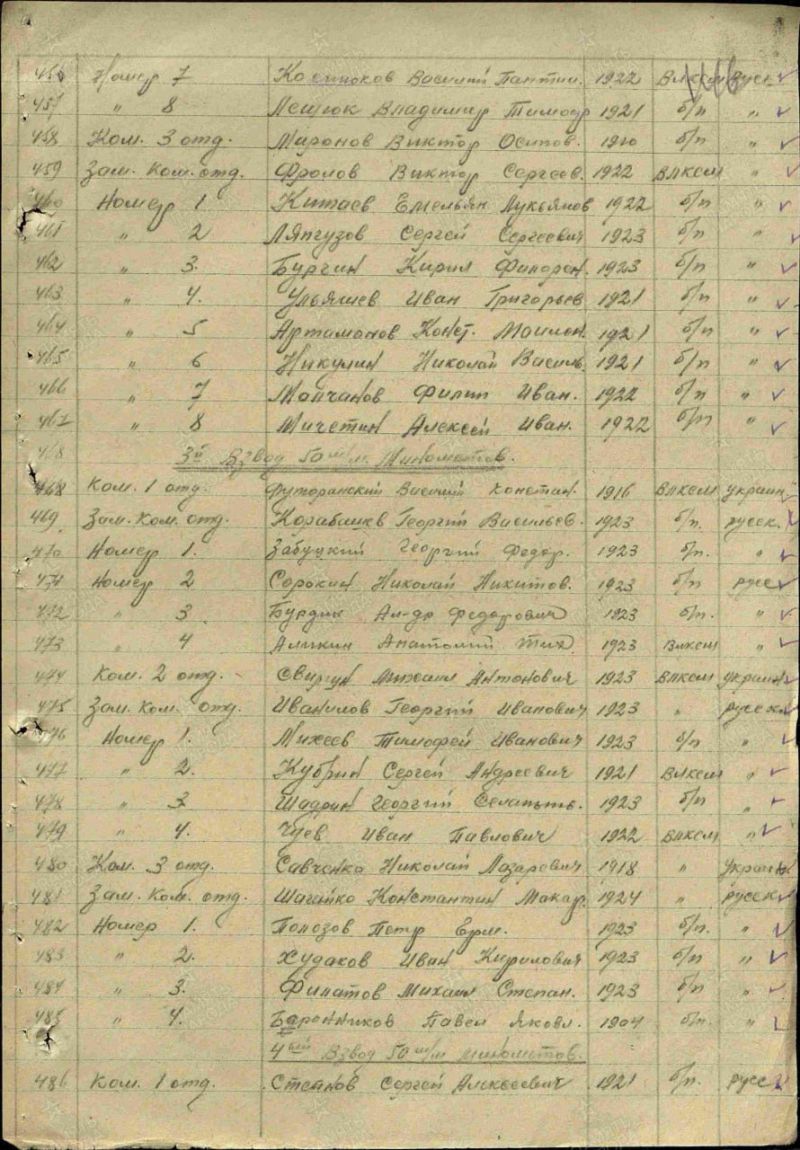 456 Номер 7 Василий Пантил. 1922 Влксм Русск
457 " 8 Лещюк Владимир Тимоф 1921 б/п "
458 Ком. 3 отд. Миронов Виктор Осипов. б/п "
459 Зам. Ком. отд. Фролов Виктор Сергеев. 1922 Влксм "
460 Номер 1 Китаев Емельян Лукьянов 1922 б/п "
461 " 2 Ляпгузов Сергей Сергеевич 1923 б/п "
462 " 3. Бургин Кирил 1923 б/п "
463 " 4. Ульяшев Иван Григорьев 1921 б/п "
464 " 5 Артамонов Конст. 1921 б/п "
465 " 6 Никулин Николай Василь. 1921 б/п "
466 " 7 Молчанов Филип Иван. 1922 б/п "
467 " 8 Мичетин Алексей Иван. 1922 б/п "
468 3й Взвод 50 м/м. Минометов.
468 Ком. 1 отд. Футоранский Василий Констан. 1916 Влксм украин
469 Зам. Ком. отд. Корабашев Георгий Васильев. 1923 б/п. русск.
470 Номер 1. Забуцкий Георгий Федор. 1923 б/п. "
471 Номер 2 Сорокин Николай Никитов. 1923 б/п. русс
472 " 3 Бурдин Ал-др Федорович 1923 б/п. "
473 " 4 Аликин Анатолий Тих 1923 Влксм "
474 Ком. 2 отд. Свиргун Михаил Антонович 1923 Влксм украин
475 Зам. Ком. отд. Иванилов Георгий Иванович 1923 " русск
476 Номер 1. Михеев Тимофей Иванович 1923 б/п "
477 " 2. Кубрин Сергей Андреевич 1921 Влксм "
478 " 3 Шадрин Георгий 1923 б/п "
479 " 4. Чуев Иван Павлович 1922 Влксм "
480 Ком. 3 отд. Савченко Николай Лазаревич 1918 " Украин
481 Зам. Ком. отд. Константин Макар. 1924 " русск
482 Номер 1. Полозов Петр Ерм. 1923 б/п. "
483 " 2. Худаков Иван Кирилович 1923 б/п "
484 " 3. Филатов Михаил Степан. 1923 б/п "
485 " 4. Баронников Павел Яковл. 1904 б/п. "
4ый Взвод 50 м/м минометов.
486 Ком. 1 отд. Степнов Сергей Алексеевич 1921 б/п. русс